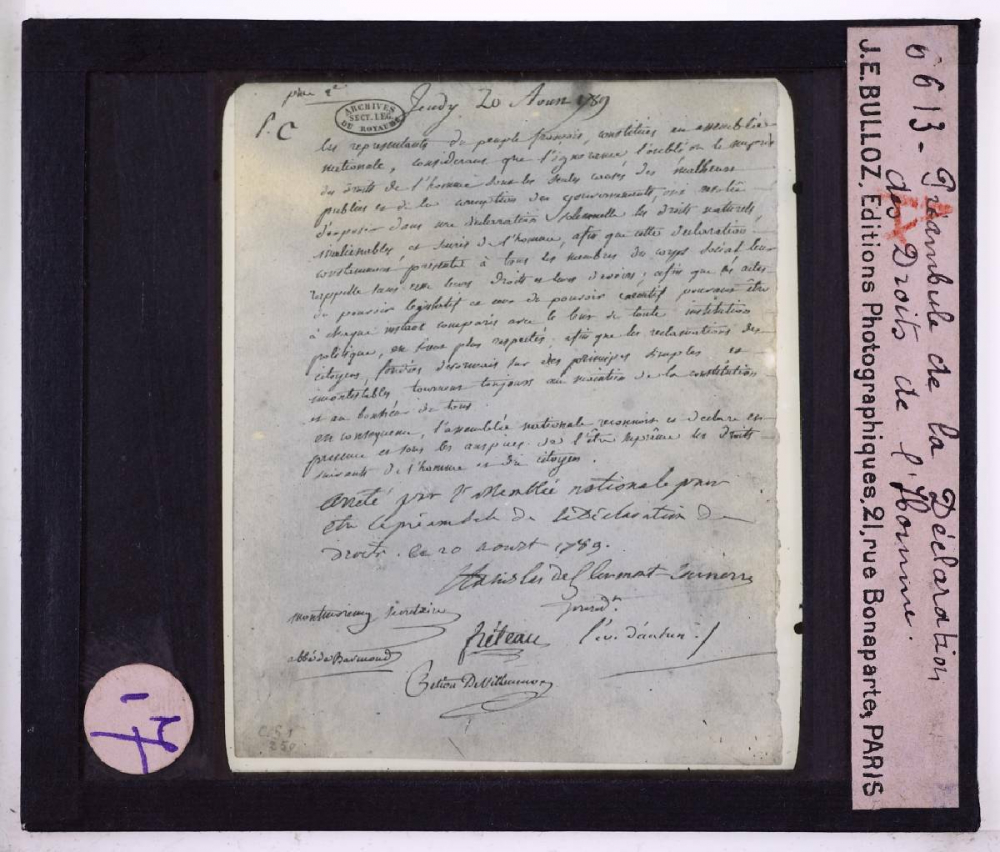 pièce 2e
Jeudy 20 Aoust 1789
ARCHIVES
SECT. LEG.
DU ROYAUME
P. C
les representants du peuple françois, constitués en assemblée
nationale, considerant que l'ignorance l'oubli ou le mepris
des droits de l'homme sont les seules causes des malheurs
publics et de la corruption des gouvernements, ont resolu
d'exposer dans une declaration solemnelle les droits naturels,
inalienables, et sacrés de l'homme, afin que cette declaration
constamment presente à tous les membres du corps social leur
rappelle sans cesse leurs droits et leurs devoirs; afin que les actes
du pouvoir legislatif et ceux du pouvoir executif pouvant être
à chaque instant comparés avec le but de toute institution
politique, en soient plus respectés; afin que les reclamations des
citoyens, fondées désormais sur des principes simples et
incontestables tournent toujours au maintien de la constitution
et au bonheur de tous.
en consequence, l'assemblée nationale reconnoit et declare en
presence et sous les auspices de l'être suprême les droits
suivants de l'homme et du citoyen.
arreté par l'assemblée nationale pour
être le préambule de la Déclaration des
droits. ce 20 aoust 1789.
Stanislas de Clermont-Tonnerre
presidt.
montmorency secretaire
fréteau l'év. d'autun.
abbé de Barmond
Petion De Villeneuve
6613 - Préambule de la Déclaration
des Droits de l'Homme.
J.E.BULLOZ, Editions Photographiques, 21, rue Bonaparte, PARIS
17